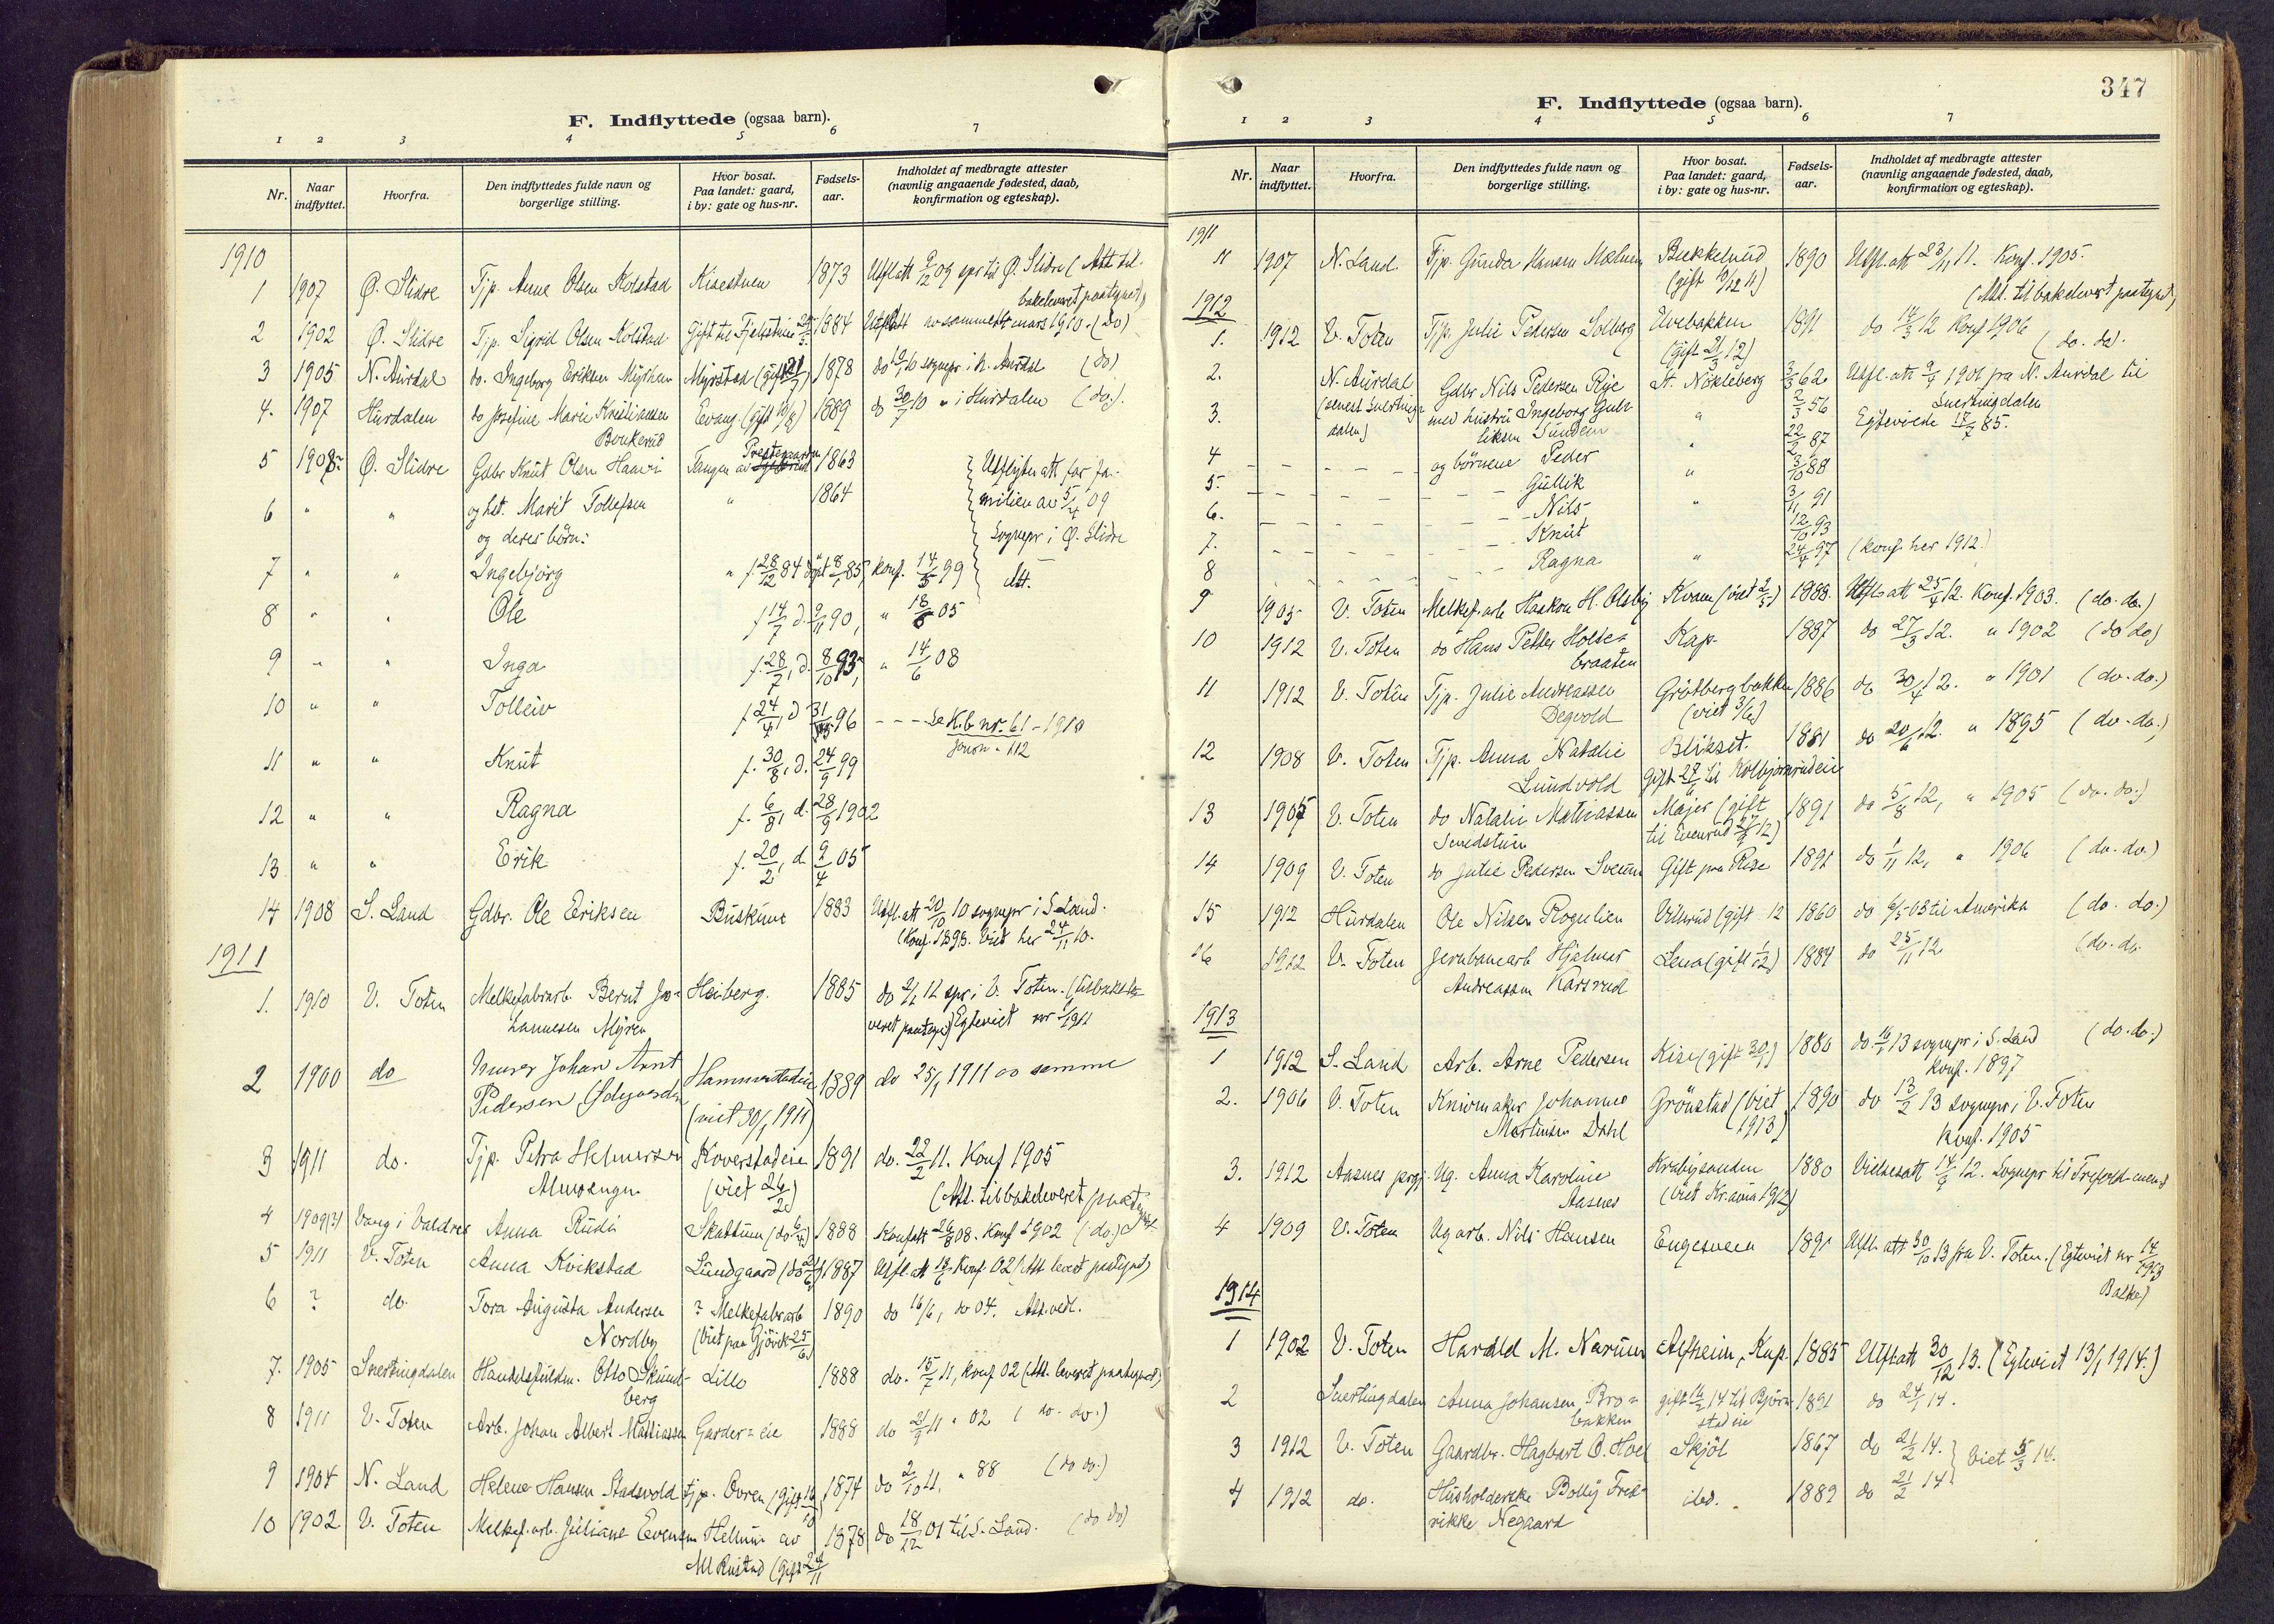 F. Indflyttede (ogsaa barn).
1 2 3 4 5 6 7
Nr. Naar indflyttet. Hvorfra. Den indflyttedes fulde navn og borgerlige stilling. Hvor bosat. Paa landet: gaard, i by: gate og hus-nr. Fødsels-aar. Indholdet af medbragte attester (navnlig angaaende fødested, daab, konfirmation og egteskap).
1910
1 1907 Ø. Slidre Tjp. Anne Olsen Kolstad Kisestuen 1873 Utflatt 9/12 09 spr til Ø. Slidre (Att til-
bakeleveret paategnet)
2 1902 Ø. Slidre Tjp. Sigrid Olsen Kolstad Gift til 1884 Utflatt av samme mars 1910 (do)
3 1905 N. Aurdal do. Ingeborg Eriksen Myrstad 1878 sognepr. i N. Aurdal (do)
4. 1907 Hurdalen do Josefine Marie Kristiansen Eevang. (gift 1889 do 30/7 10 " i Hurdalen (do).
5 1908 Ø. Slidre Gdbr Knut Olsen Haavi Tangen av Prestegaarden 1863 Utflytn att for fa-
6 " " og hst. Marit Tollefsen " 1864 milien av 5/4 09
og deres børn: Sognepr i Ø. Slidre
7 " " Ingebjörg " f 28/12 84 döpt 8/1 85, konf. 14/5 99 Att.
8 " " Ole f 14/7 d. 9/11 90, " 18/6 05
9 " " Inga f. 28/7, d. 8/10 93, " 14/6 08
10 " " Tolleiv f 24/4, d 31/5 96 - - - Se K.b nr. 61 - 1910
11 " " Knut f. 30/8, d. 24/9 99
12 " " Ragna f. 6/8, d. 28/9 1902
13 " " Erik f. 20/2, d 9/4 05
14 1908 S. Land Gdbr. Ole Eriksen Buskum 1883 Utfl. att 20/10 10 sognepr i S Land.
(Konf. 1898. Viet her 24/11 10.
1911
1. 1910 V. Toten Melkefabrarb. Bernt Jo- Heiberg. 1885 do 2/1 11 spr i V. Toten. (tilbakele-
hannesen Myren veret paategn.) Egteviet
2 1900 do Murer Johan Arnt Hammerstadeie 1889 do 25/1 1911 av samme
Pedersen (viet 30/1 1911)
3 1911 do. Tjp. Petra Helmersen Koverstadeie 1891 do. 22/2 11. Konf 1905
Almsengen (viet 26/2) (Att. tilbakeleveret paategnet
4 1909 Vang i Valdres Anna Rudi Skattum 1888 Konfatt 26/8 08. Konf 1902 (do.)
5 1911 V. Toten Anna Kvikstad Lundgaard 1887 Utfl. att Konf. 02 (Att levert paategnet)
6 ? do. Tora Augusta Andersen ? Melkefabrarb 1890 do 16/6, do 04. Att. vedl.
Nordby (Viet paa Gjövik 25/6)
7. 1905 Snertingdalen Handelsfuldm. Otto Skund- Lillo 1888 do. 15/7 11, Konf 02 (Att. leveret paategnet)
berg
8 1911 V. Toten Arb. Johan Albert Mathiassen Garder-eie 1888 do 21/9 11 " 02 (do. do.)
9 1904 N. Land Helene Hansen Stadsvold tjp. Ovren (Gift 1874 do 2/10 11, " 88 (do do.)
10 1902 V. Toten Melkef. arb. Juliane Evensen Hellum av 1878 do 18/12 01 til S. Land. (do do)
Rustad (gift 24/11

347
F. Indflyttede (ogsaa barn).
1 2 3 4 5 6 7
Nr. Naar indflyttet. Hvorfra. Den indflyttedes fulde navn og borgerlige stilling. Hvor bosat. Paa landet: gaard, i by: gate og hus-nr. Fødsels-aar. Indholdet af medbragte attester (navnlig angaaende fødested, daab, konfirmation og egteskap).
1911
11 1907 N. Land Tjp. Gunda Hansen Mælum Bukkelrud 1890 Utfl. att 23/11 11. Konf. 1905.
(gift 9/12 11) (Att. tilbakelevert paategnet)
1912
1. 1912 V. Toten Tjp. Julie Pedersen Solberg Elvebakken 1891 do 14/3 12 Konf 1906 (do. do).
(gift 21/3 12)
2. N. Aurdal Gdbr Nils Pedersen Rye N. Nökleberg 62 Utfl. att 9/4 1906 fra N. Aurdal til
3. (senest Snerting- med hustru Ingeborg Gul- " 56 Snertingdalen
dalen) liksen Sundem Egteviede 17/7 85.
4 og börnene Peder " 22/2 87
5. Gullik " 3/10 88
6. Nils " 3/11 91
7. Knut 12/10 93
8 Ragna " 24/4 97 (konf. her 1912.)
9 1905 V. Toten Melkef. arb Haakon H. Olsby Kvam (viet 2/5) 1888. Utfl. att 25/4 12. Konf. 1903. (do. do.)
10 1912 V. Toten do Hans Petter Holte- Kap. 1887 do 27/3 12. " 1902 (do do)
braaten
11 1912 V. Toten Tjp. Julie Andreassen Grötbergbakken 1886 do 30/4 12. " 1901 (do. do.)
Degvold (viet 3/6)
12 1908 V. Toten Tjp. Anna Natalie Blikset. 1881 do 20/6 12. " 1895 (do. do.)
Lundvold Gift til Kolbjørnrudeie
13 1905 V. Toten do Natalie Mathiassen Majer (gift 1891 do 5/8 12, " 1905 (do. do.)
Smedstuen til Evenrud
14 1909 V. Toten do Julie Pedersen Sveum Gift paa Rise 1891 do 1/11 12, " 1906 (do. do.)
15 1912 Hurdalen Ole Nilsen Rognlien (gift 12 1860 do 6/5 03 til Amerika (do. do.)
16 1912 V. Toten Jernbanearb Hjalmar Lena (gift 1/12) 1884 do 25/11 12 (do. do.
Andreassen Karsrud
1913
1 1912 S. Land Arb. Arne Pedersen Kise (gift 1880 do 16/1 13 sognepr i S. Land (do. do.)
Konf. 1897
2. 1906 V. Toten Knivmaker Johannes Grönstad (Viet 1890 do 13/2 13 sognepr i V. Toten
Martinsen Dahl 1913) Konf. 1905
3. 1912 Aasnes prgj. Ug. Anna Karoline Krabysanden 1880 Vielsesatt 14/9 12. Sognepr til
Aasnes (viet Kr.ania 1912)
4 1909 V. Toten Ug arb. Nils Hansen Engesveen 1891 Utfl. att 30/10 13 fra V. Toten. (Egteviet nr 14
1913
Balke)
1914
1 1902 V. Toten Harald M. Narum Alfheim, Kap. 1885 Utflatt 30/12 13. (Egteviet 13/1 1914.)
2 Snertingdalen Anna Johansen Bro- gift 14 til Björn- 1891 do 24/1 14.
bakken stadeie
3 1912 V. Toten Gaardbr. Hagbart O. Hoel Skjöl 1867 do 21/2 14. } Viet 5/3 14.
4 1912 do. Husholderske Bolly Fred- ibd. " 1889 do 21/2 14
rikke Negaard